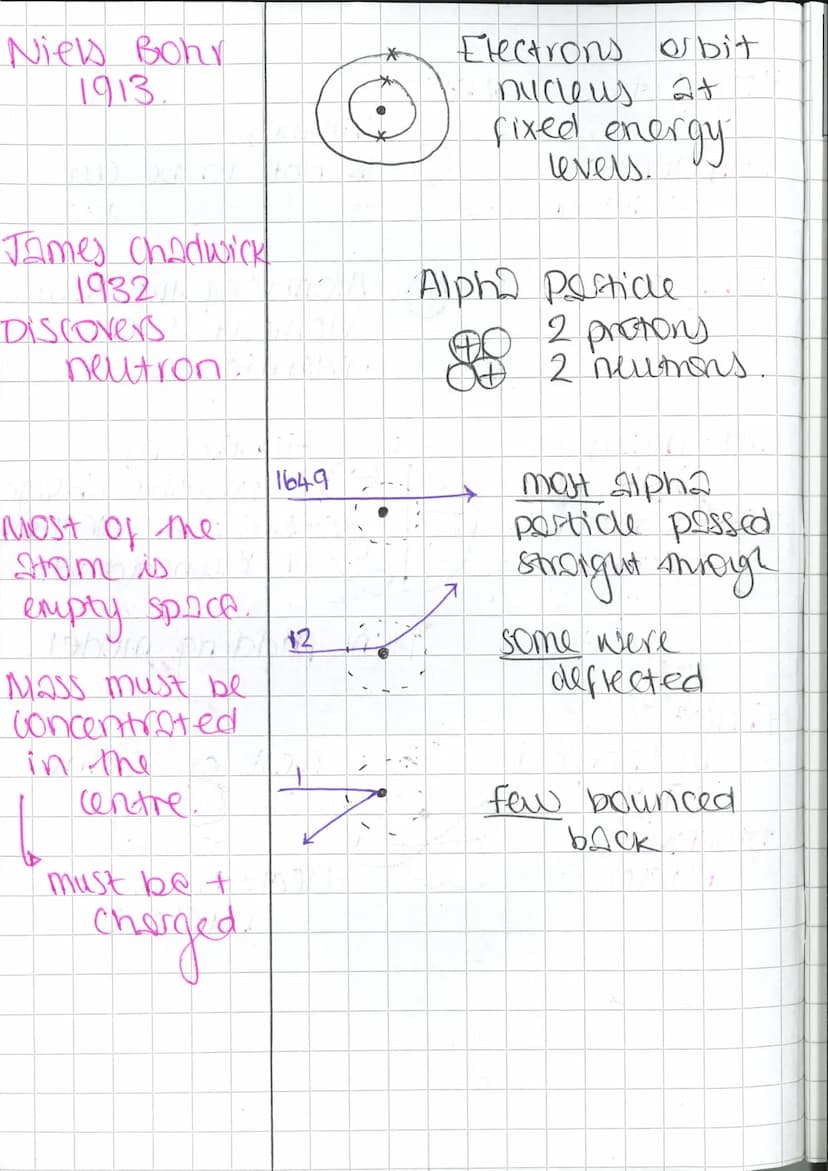 Niels Bohr
1913.
Electrons orbit
nucleus at
fixed energy
levels.
James Chadwick
1932
Discovers
neutron.
Alpha Particle
2 protons
2 neutrons.
1649
most alpha
particle passed
straight through
Most of the
atom is
empty space.
12
some were
deflected
Mass must be
concentrated
in the
centre.
must be +
charged.
1
few bounced
back.